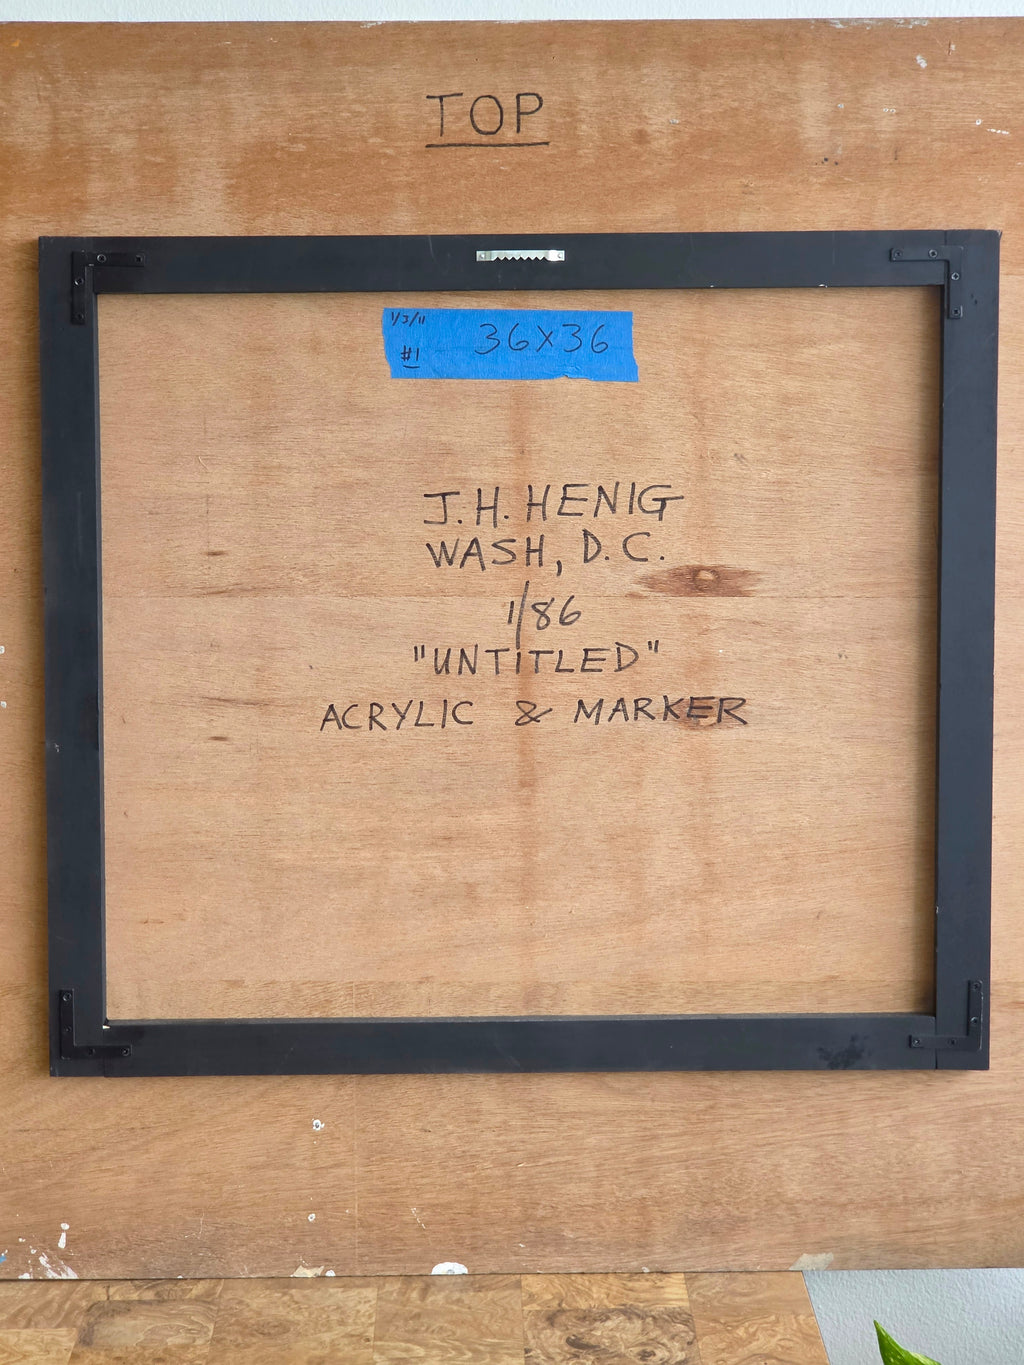 TOP
1/3/11
36X36
#1
J.H. HENIG
WASH, D.C.
1/86
"UNTITLED"
ACRYLIC & MARKER